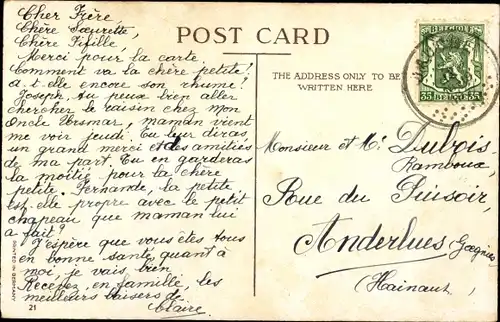 Cher Frère,
Chère Soeurette,
Chère Fifille,
Merci pour la carte.
Comment va la chère petite?
a.t.elle encore son rhume?
Joseph. Au peux bien aller
chercher le raisin chez mon
Oncle Ursmar, maman vient
me voir jeudi. Tu leur diras,
un grand merci et des amitiés
de ma part. Tu en garderas
la moitié pour la chère
petite. Fernande, la petite
est.elle propre avec le petit
chapeau que maman lui
a fait?
J'espère que vous êtes tous
en bonne santé, quant à
moi, je vais bien
Recevez, en famille, les
meilleurs baisers de
Claire.
PRINTED IN GERMANY
21
POST CARD
THE ADDRESS ONLY TO BE
WRITTEN HERE
BELGIQUE
35 BELGIË 35
Monsieur et Me Dubois-
Ramboux
Rue du
Anderlues
(Hainaut)